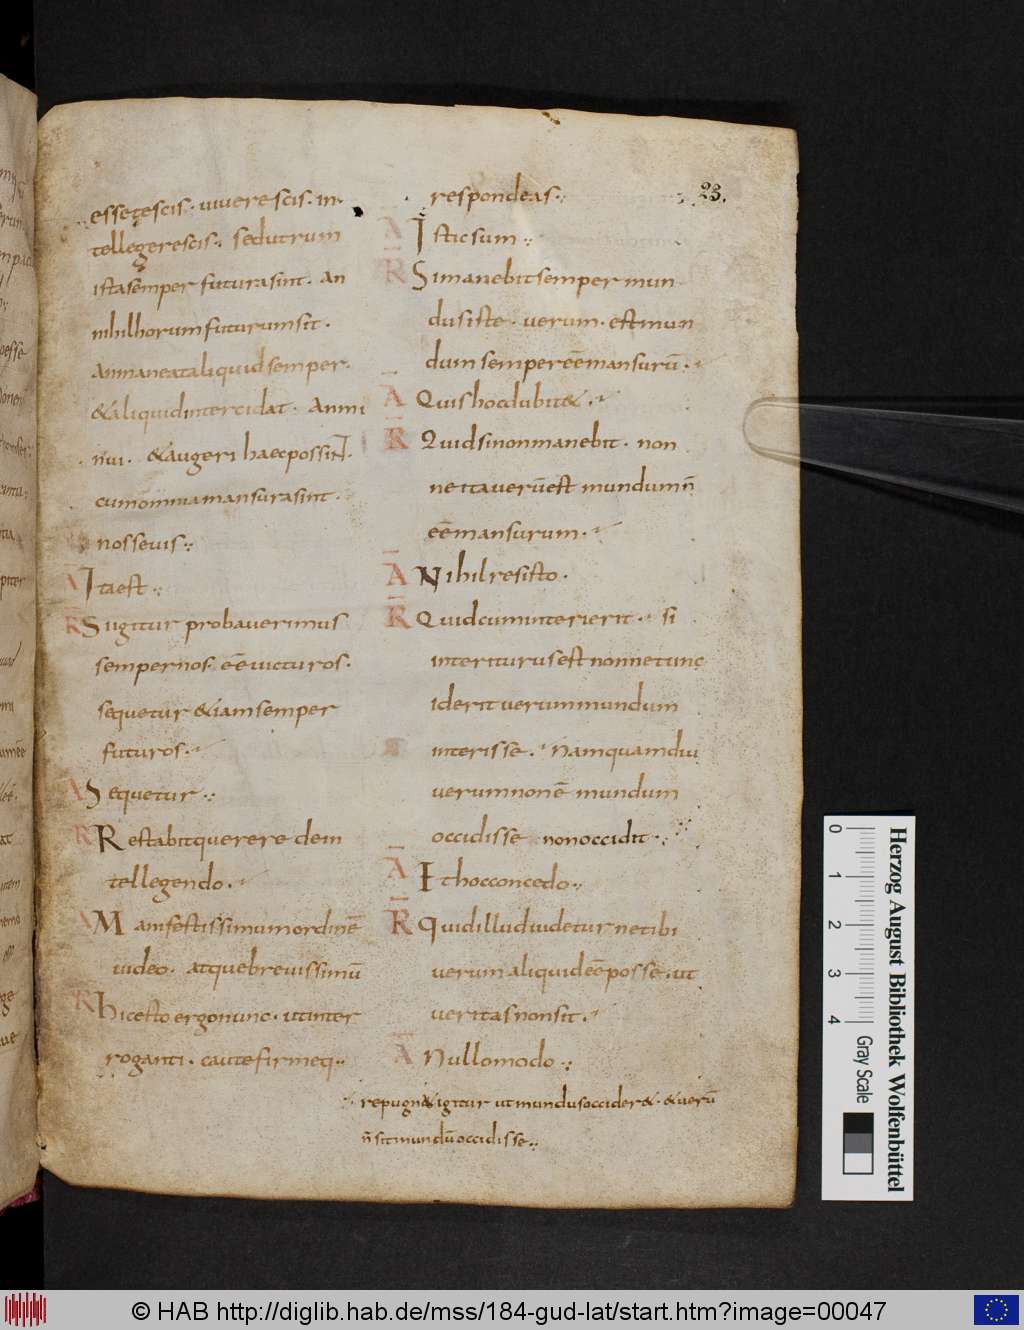 esse te scis. vivere scis. in
tellegere scis. sed utrum
ista semper futura sint. an
nihil horum futurum sit.
an maneat aliquid semper.
& aliquid intercidat. an mi
nui. & augeri haec possint.
cum omnia mansura sint.
nosse vis
A Ita est
R Si igitur probaverimus
semper nos. eē victuros.
sequetur & iam semper
futuros.
A Sequetur
R Restabit querere de in
tellegendo.
A Manifestissimum ordinē
video. atque brevissimū
R hic esto ergo nunc. ut inter
roganti. caute firmeq;
respondeas
A Istic sum
R Si manebit semper mun
dus iste. verum. est mun
dum semper eē mansurū.
A Quis hoc dubit&.
R Quid si non manebit. non
ne ita verū est mundum n̄
eē mansurum.
A Nihil resisto.
R Quid cum interierit. si
interiturus est nonne tunc
id erit verum mundum
interisse. Nam quamdiu
verum non ē mundum
occidisse non occidit.
A Et hoc concedo.
R Quid illud videtur ne tibi
verum aliquid eē posse. ut
veritas non sit.
A Nullo modo
repugn& igitur ut mundus occider&. & verū
n̄ sit mundū occidisse
23.
Herzog August Bibliothek Wolfenbüttel
0 1 2 3 4
Gray Scale
© HAB http://diglib.hab.de/mss/184-gud-lat/start.htm?image=00047